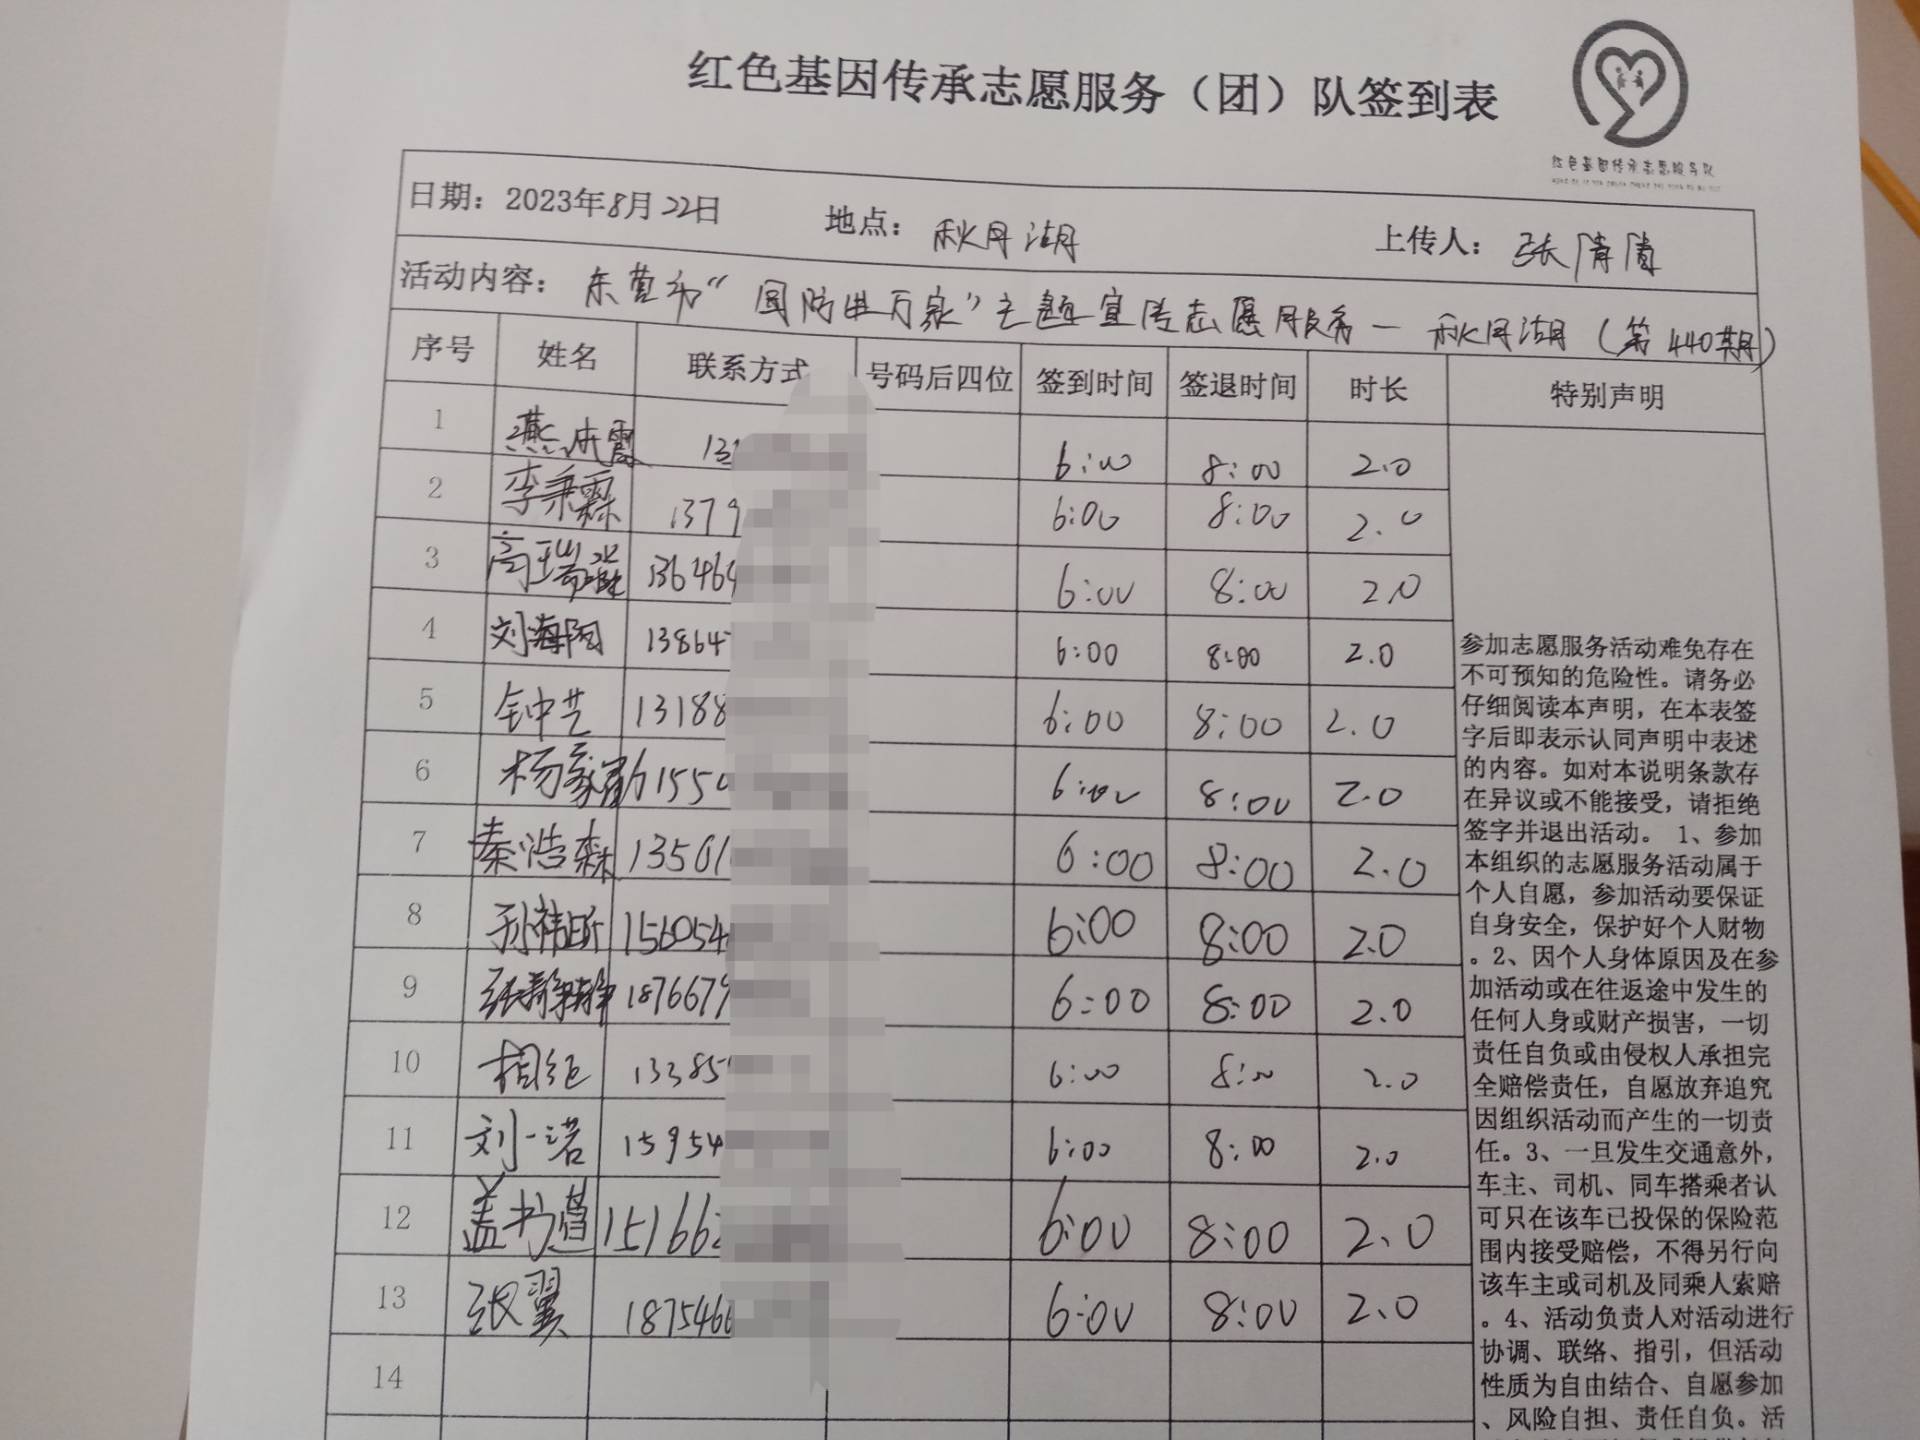 红色基因传承志愿服务（团）队签到表
红色基因传承志愿服务队
日期：2023年8月22日 地点：秋月湖 上传人：张倩倩
活动内容：东营市“国防进万家”主题宣传志愿服务—秋月湖（第440期）
序号 姓名 联系方式 号码后四位 签到时间 签退时间 时长 特别声明
1 燕成霞 13 6:00 8:00 2.0
2 李秉霖 1379 6:00 8:00 2.0
3 高瑞 13646 6:00 8:00 2.0
4 刘海阔 13864 6:00 8:00 2.0
5 钟中艺 13188 6:00 8:00 2.0
6 杨豪 6155 6:00 8:00 2.0
7 秦浩森 13561 6:00 8:00 2.0
8 孙祎昕 156054 6:00 8:00 2.0
9 张静静 1876679 6:00 8:00 2.0
10 相 13385 6:00 8:00 2.0
11 刘一诺 15954 6:00 8:00 2.0
12 盖书萱 15166 6:00 8:00 2.0
13 张翼 1875466 6:00 8:00 2.0
14
参加志愿服务活动难免存在
不可预知的危险性。请务必
仔细阅读本声明，在本表签
字后即表示认同声明中表述
的内容。如对本说明条款存
在异议或不能接受，请拒绝
签字并退出活动。 1、参加
本组织的志愿服务活动属于
个人自愿，参加活动要保证
自身安全，保护好个人财物
。2、因个人身体原因及在参
加活动或在往返途中发生的
任何人身或财产损害，一切
责任自负或由侵权人承担完
全赔偿责任，自愿放弃追究
因组织活动而产生的一切责
任。3、一旦发生交通意外，
车主、司机、同车搭乘者认
可只在该车已投保的保险范
围内接受赔偿，不得另行向
该车主或司机及同乘人索赔
。4、活动负责人对活动进行
协调、联络、指引，但活动
性质为自由结合、自愿参加
、风险自担、责任自负。活